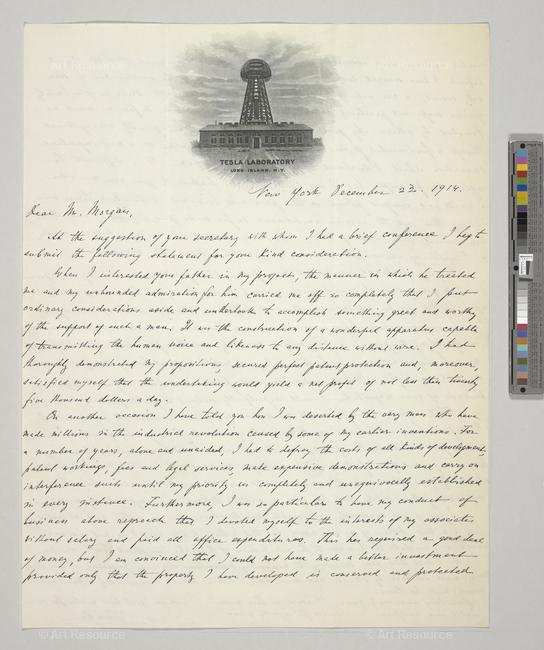 © Art Resource
© Art Resource
TESLA LABORATORY
LONG ISLAND, N.Y.
New York December 23. 1914.
Dear Mr. Morgan,
At the suggestion of your secretary with whom I had a brief conference I beg to
submit the following statement for your kind consideration.
When I interested your father in my project, the manner in which he treated
me and my unbounded admiration for him carried me off so completely that I put
ordinary considerations aside and undertook to accomplish something great and worthy
of the support of such a man. It was the construction of a wonderful apparatus capable
of transmitting the human voice and likeness to any distance without wire. I had
thoroughly demonstrated my propositions, secured perfect patent protection and, moreover,
satisfied myself that the undertaking would yield a net profit of not less than twenty
five thousand dollars a day.
On another occasion I have told you how I was deserted by the very men who have
made millions in the industrial revolution caused by some of my earlier inventions. For
a number of years, alone and unaided, I had to defray the costs of all kinds of development,
patent workings, fees and legal services, make expensive demonstrations and carry on
interference suits until my priority was completely and unequivocally established
in every instance. Furthermore, I was so particular to have my conduct of
business above reproach that I devoted myself to the interests of my associates
without salary and paid all office expenditures. This has required a good deal
of money, but I am convinced that I could not have made a better investment
provided only that the property I have developed is conserved and protected
© Art Resource
© Art Resource